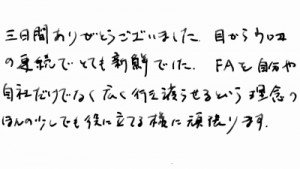 三日間ありがとうございました。目からウロコ
の連続でとても新鮮でした。FAを自分や
自社だけでなく広く行き渡らせるという理念の
ほんの少しでも役に立てる様に頑張ります。